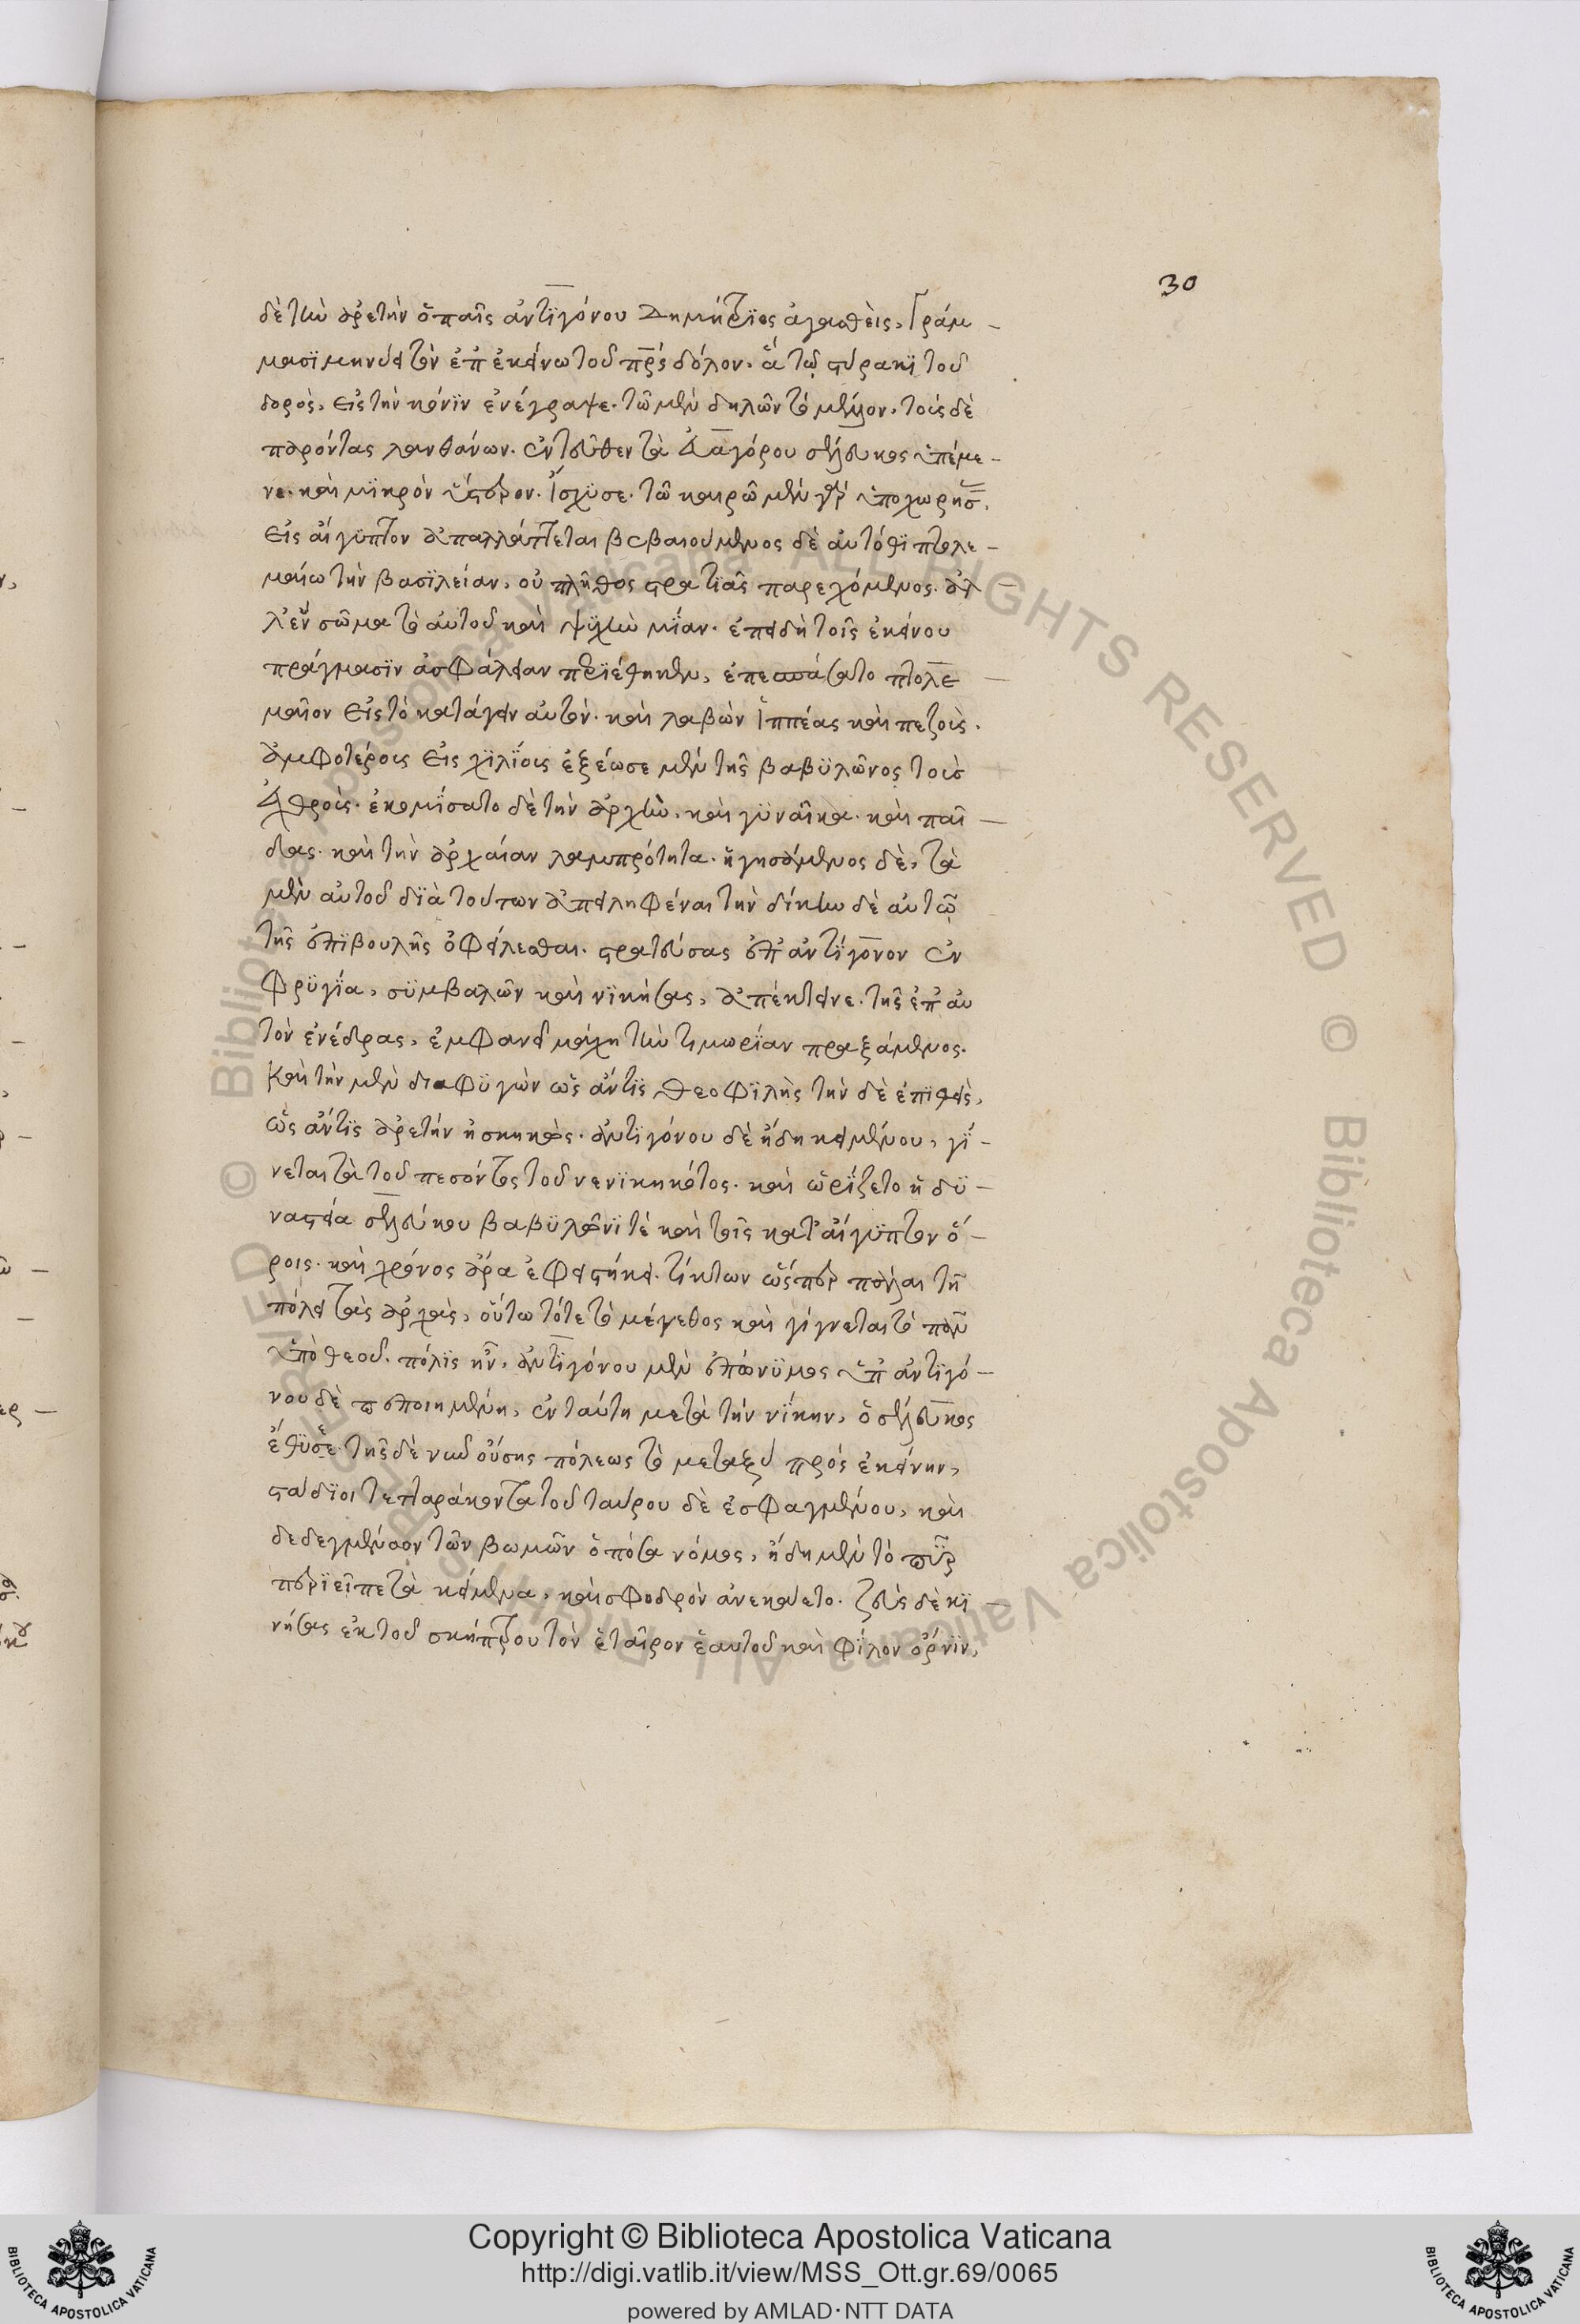 30
δὲ τὴν ἀρετὴν ὁ παῖς ἀντιγόνου Δημήτριος ἀγασθεὶς, Γράμ –
μασϊ μηνύει τὸν ἐπ' ἐκείνω τοῦ πρς δόλον. ἃ τῷ στύρακϊ τοῦ
δορὸς, εἰς τὴν κόνϊν ἐνέγραψε. τῶ μὲν δηλῶν τὸ μέλλον, τοὺς δὲ
παρόντας λανθάνων. ἐντεῦθεν τὰ διαγόρου σέλευκος ὑπέμε –
νε. καὶ μϊκρὸν ὕστερον. ἴσχϋσε. τῶ καιρῶ μὲν γὰρ ὑποχωρήσ,
εἰς αἴγϋπτον ἀπαλλάττεται βεβαιούμενος δὲ αὐτόθϊ πτολε –
μαίω τὴν βασϊλείαν, οὐ πλῆθος στρατιᾶς παρεχόμενος. ἀλ –
λ' ἓν σῶμα τὸ αὐτοῦ καὶ ψϋχὴν μΐαν. ἐπειδὴ τοῖς ἐκείνου
πράγμασϊν ἀσφάλειαν περϊέθηκεν, ἐπεσπάσατο πτολε –
μαῖον εἰς τὸ κατάγειν αὐτὸν. καὶ λαβὼν ἱππέας καὶ πεζοὺς.
ἀμφοτέρους εἰς χϊλΐους ἐξέωσε μὲν τῆς βαβϋλῶνος τοὺσ
ἐχθροὺς. ἐκομΐσατο δὲ τὴν ἀρχὴν, καὶ γϋναῖκα. καὶ παῖ –
δας. καὶ τὴν ἀρχαίαν λαμπρότητα. ἡγησάμενος δὲ, τὰ
μὲν αὐτοῦ δϊὰ τούτων ἀπειληφέναι τὴν δίκην δὲ αὐτῷ
τῆς ἐπϊβουλῆς ὀφείλεσθαι. στρατεύσας ἐπ' ἀντίγονον ἐν
Φρϋγΐα, σϋμβαλῶν καὶ νϊκήσας, ἀπέκτεινε. τῆς ἐπ' αὐ
τὸν ἐνέδρας, ἐμφανεῖ μάχη τὴν τιμωρΐαν πραξάμενος.
Καὶ τὴν μὲν διαφϋγὼν ὡς ἄντϊς θεοφϊλὴς τὴν δὲ ἐπϊθεὶς,
ὡς ἄντϊς ἀρετὴν ἠσκηκὼς. ἀντιγόνου δὲ ἤδη κειμένου, γΐ –
νεται τὰ τοῦ πεσόντος τοῦ νενϊκηκότος. καὶ ὡρΐζετο ἡ δϋ –
ναστεία σελεύκου βαβϋλῶνϊ τὲ καὶ τοῖς κατ' αἴγϋπτον ὅ –
ροις. καὶ χρόνος ἄρα ἐφειστήκει. τίκτων ὥσπερ πάλαι τῆ
πόλει τὰς ἀρχὰς, οὕτω τότε τὸ μέγεθος καὶ γίγνεται τὸ πᾶν
ὑπὸ θεοῦ. πόλϊς ἦν, ἀντϊγόνου μὲν ἐπώνϋμος ὑπ' ἀντϊγό –
νου δὲ πεποιημένη, ἐν ταύτη μετὰ τὴν νΐκην, ὁ σέλευκος
ἔθϋσε. τῆς δὲ νῦν οὔσης πόλεως τὸ μεταξὺ πρὸς ἐκείνην,
στάδϊοι τετταράκοντα τοῦ ταύρου δὲ ἐσφαγμένου, καὶ
δεδεγμένων τῶν βωμῶν ὁπόσα νόμος, ἤδη μὲν τὸ πῦρ
περϊεῖπε τὰ κείμενα, καὶ σφοδρὸν ἀνεκάετο. ζεὺς δὲ κϊ –
νήσας ἐκ τοῦ σκήπτρου τὸν ἑταῖρον ἑαυτοῦ καὶ φΐλον ὄρνϊν,
Copyright © Biblioteca Apostolica Vaticana
http://digi.vatlib.it/view/MSS_Ott.gr.69/0065
powered by AMLAD·NTT DATA